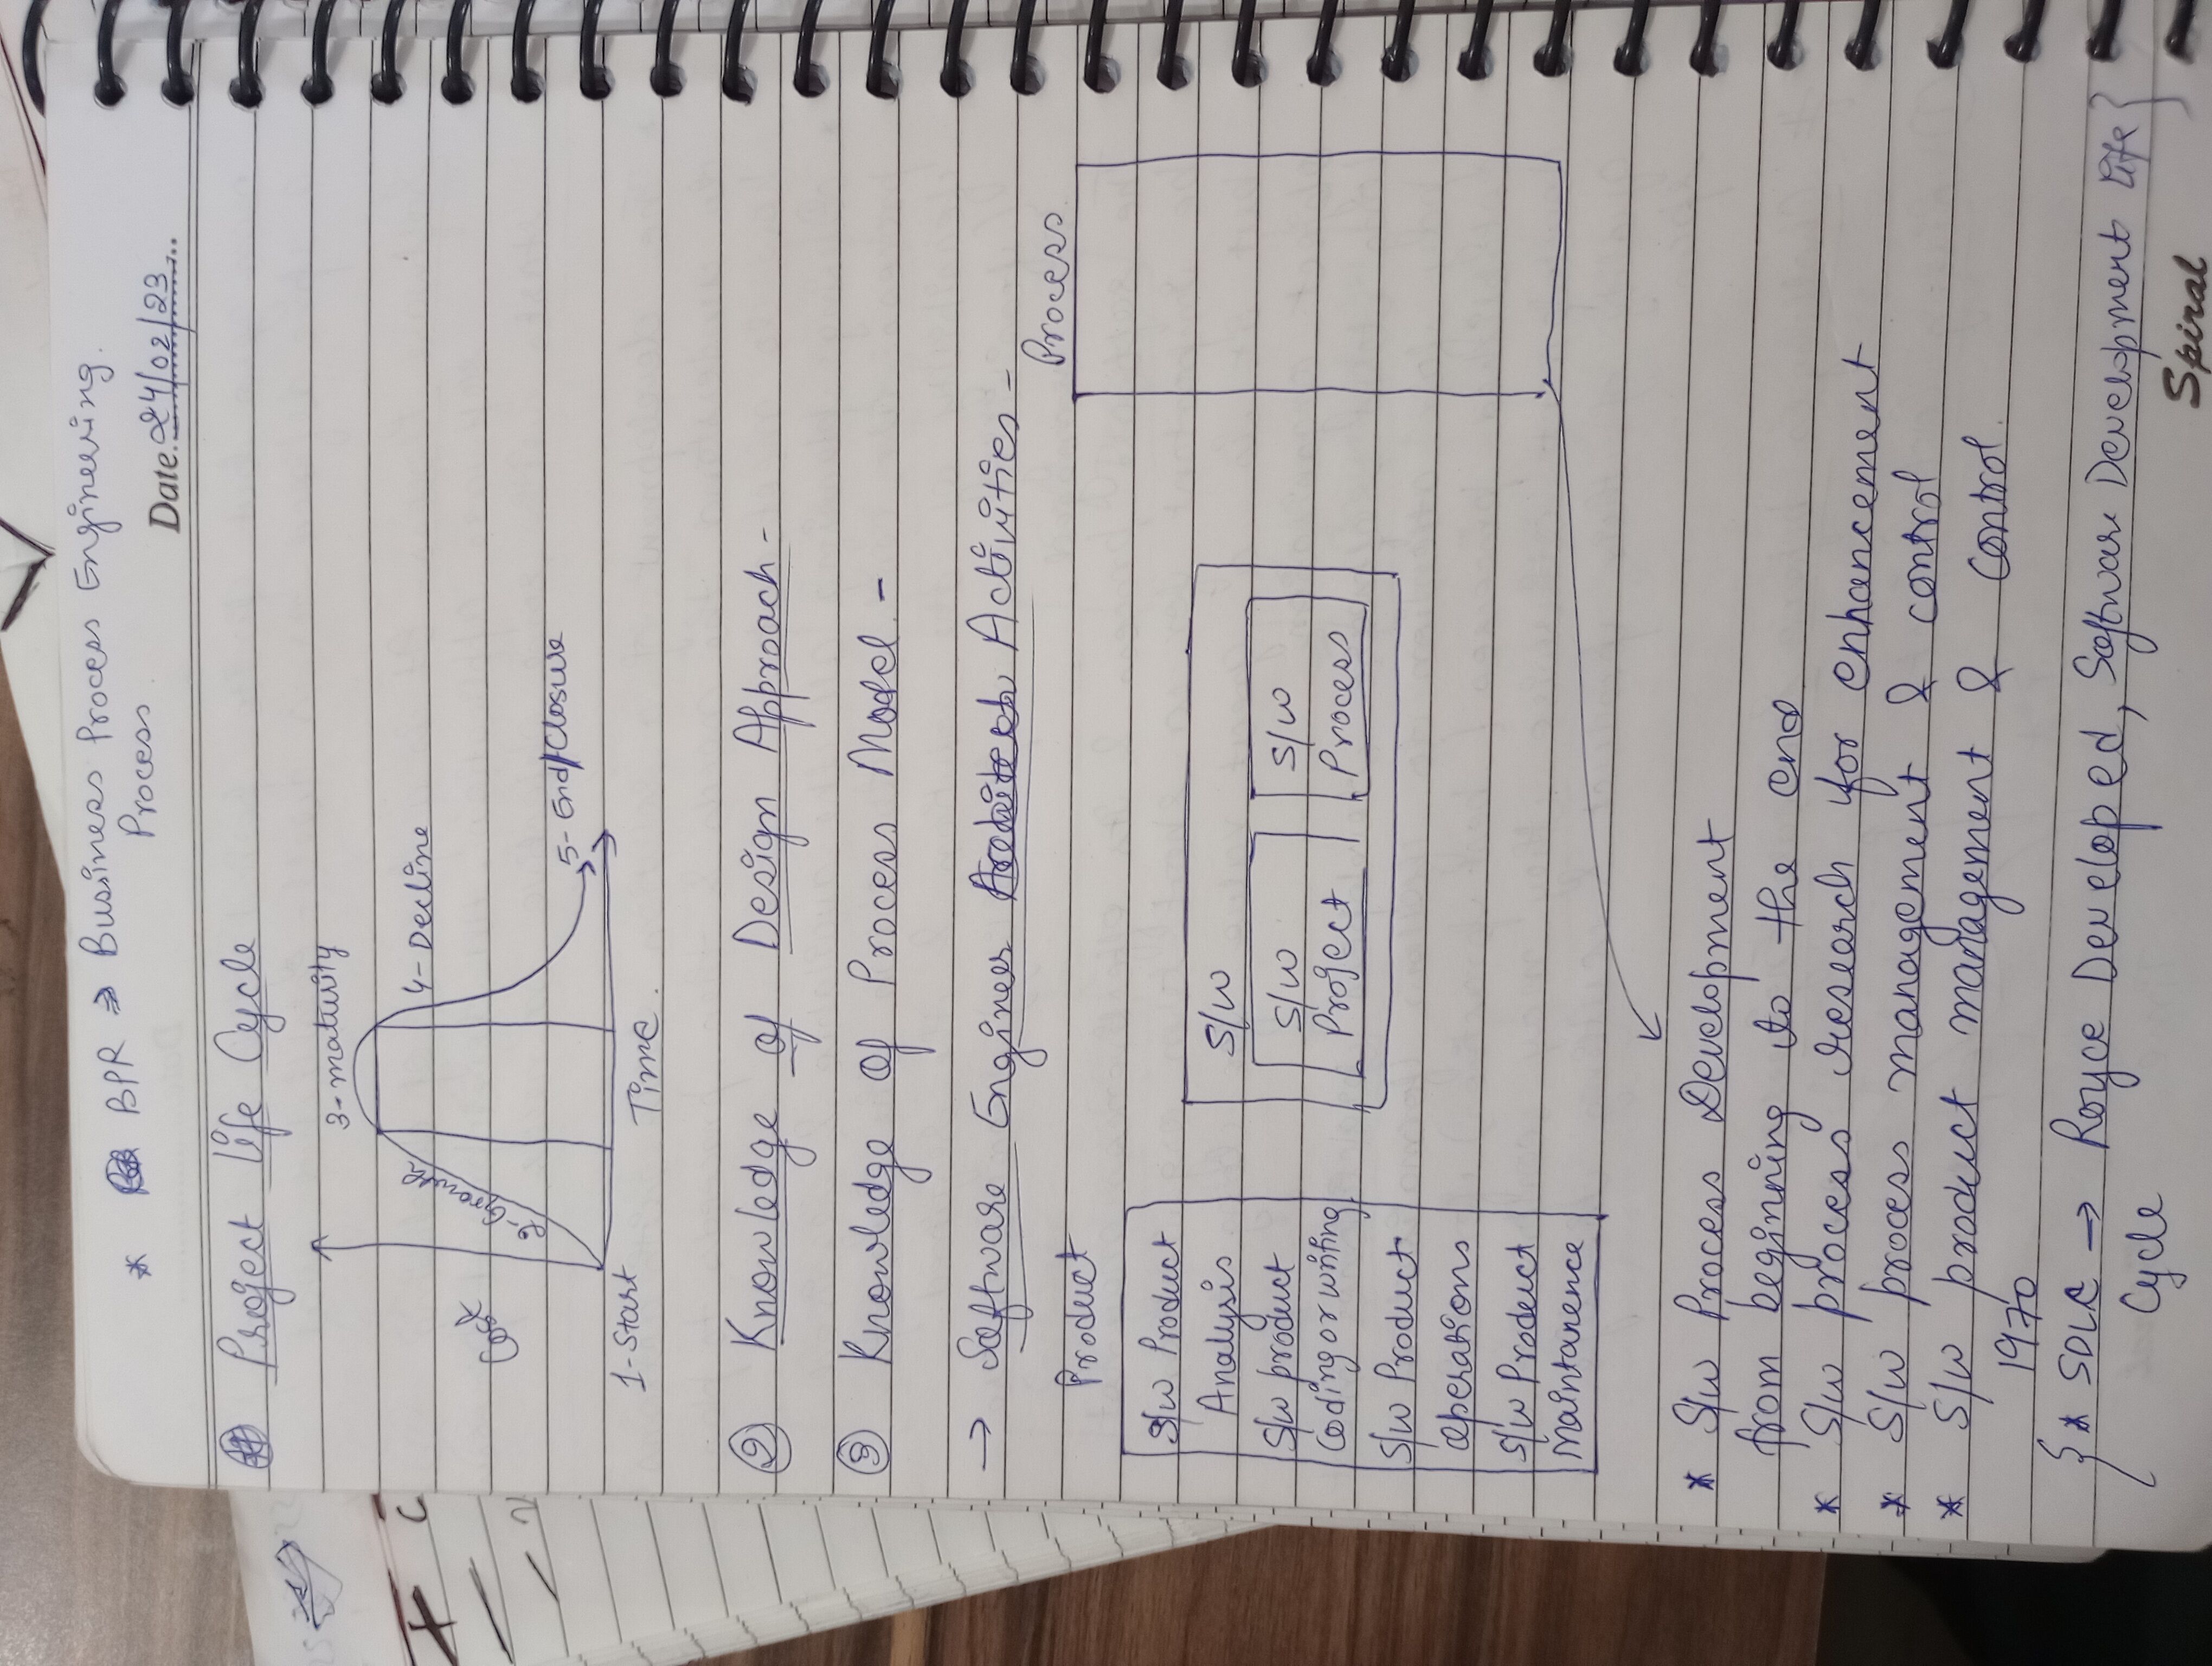 * BPR ⇒ Business Process Engineering.
Process
Date. 24/02/23
Project life Cycle
3-maturity
4-Decline
2-Growth
Cost
5-End/Closure
1-Start
Time.
② Knowledge of Design Approach-
③ Knowledge of Process Model -
→ Software Engineer Activities -
Product
Process
S/w Product
Analysis
S/w product
Coding or writing
S/w Product
operations
S/w Product
Maintanence
S/w
S/w
Project
S/w
Process
* S/w Process Development
from beginning to the end
* S/w process research for enhancement
* S/w process management & control
* S/w product management & Control.
1970
{* SDLC → Royce Developed, Software Development life}
Cycle
Spiral